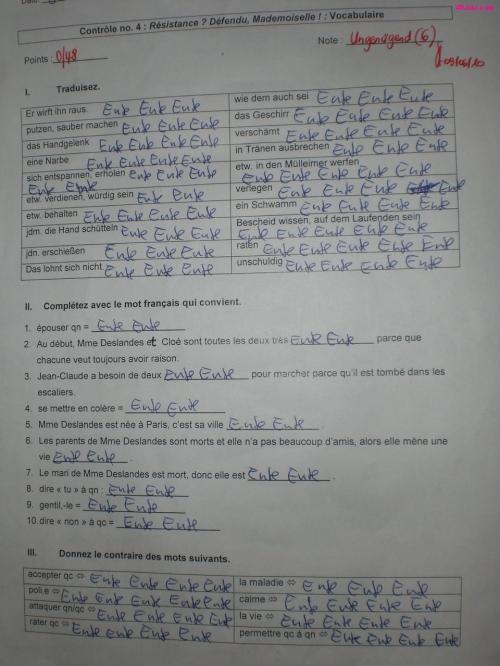 Contrôle no. 4 : Résistance ? Défendu, Mademoiselle ! : Vocabulaire
Note : Ungenügend (6)
Points : 0/48
I. Traduisez.
Er wirft ihn raus. Ente Ente Ente
wie dem auch sei Ente Ente Ente
putzen, sauber machen Ente Ente Ente
das Geschirr Ente Ente Ente Ente
das Handgelenk Ente Ente Ente Ente
verschämt Ente Ente Ente Ente
eine Narbe Ente Ente Ente Ente
in Tränen ausbrechen Ente Ente Ente
sich entspannen, erholen Ente Ente Ente
Ente Ente
etw. in den Mülleimer werfen
Ente Ente Ente Ente
etw. verdienen, würdig sein Ente Ente
verlegen Ente Ente Ente Ente
etw. behalten Ente Ente Ente Ente
ein Schwamm Ente Ente Ente Ente
jdm. die Hand schütteln Ente Ente Ente
Bescheid wissen, auf dem Laufenden sein
Ente Ente Ente Ente Ente
jdn. erschießen Ente Ente Ente
raten Ente Ente Ente Ente Ente
Das lohnt sich nicht. Ente Ente Ente
unschuldig Ente Ente Ente Ente
II. Complétez avec le mot français qui convient.
1. épouser qn = Ente Ente
2. Au début, Mme Deslandes et Cloé sont toutes les deux très Ente Ente parce que
chacune veut toujours avoir raison.
3. Jean-Claude a besoin de deux Ente Ente pour marcher parce qu'il est tombé dans les
escaliers.
4. se mettre en colère = Ente Ente
5. Mme Deslandes est née à Paris, c'est sa ville Ente Ente .
6. Les parents de Mme Deslandes sont morts et elle n'a pas beaucoup d'amis, alors elle mène une
vie Ente Ente .
7. Le mari de Mme Deslandes est mort, donc elle est Ente Ente .
8. dire « tu » à qn : Ente Ente
9. gentil,-le = Ente Ente
10. dire « non » à qc = Ente Ente
III. Donnez le contraire des mots suivants.
accepter qc ⇔ Ente Ente Ente Ente
la maladie ⇔ Ente Ente Ente
poli,e ⇔ Ente Ente Ente Ente Ente
calme ⇔ Ente Ente Ente Ente
attaquer qn/qc ⇔ Ente Ente Ente Ente
la vie ⇔ Ente Ente Ente Ente
rater qc ⇔ Ente Ente Ente Ente
permettre qc à qn ⇔ Ente Ente Ente Ente